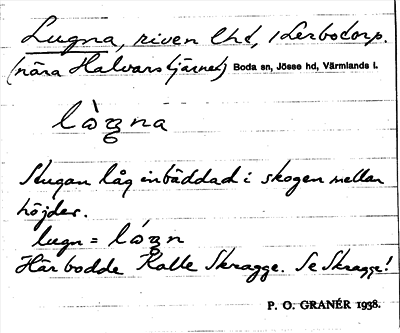 Lugna, riven lht, i Lerbotorp.
(nära Halvarstjärnet) Boda sn, Jösse hd, Värmlands l.
làgna
Stugan låg inbäddad i skogen mellan
höjder.
lugn = lágn
Här bodde Kalle Skragge. Se Skragge!
P. O. GRANÉR 1938.